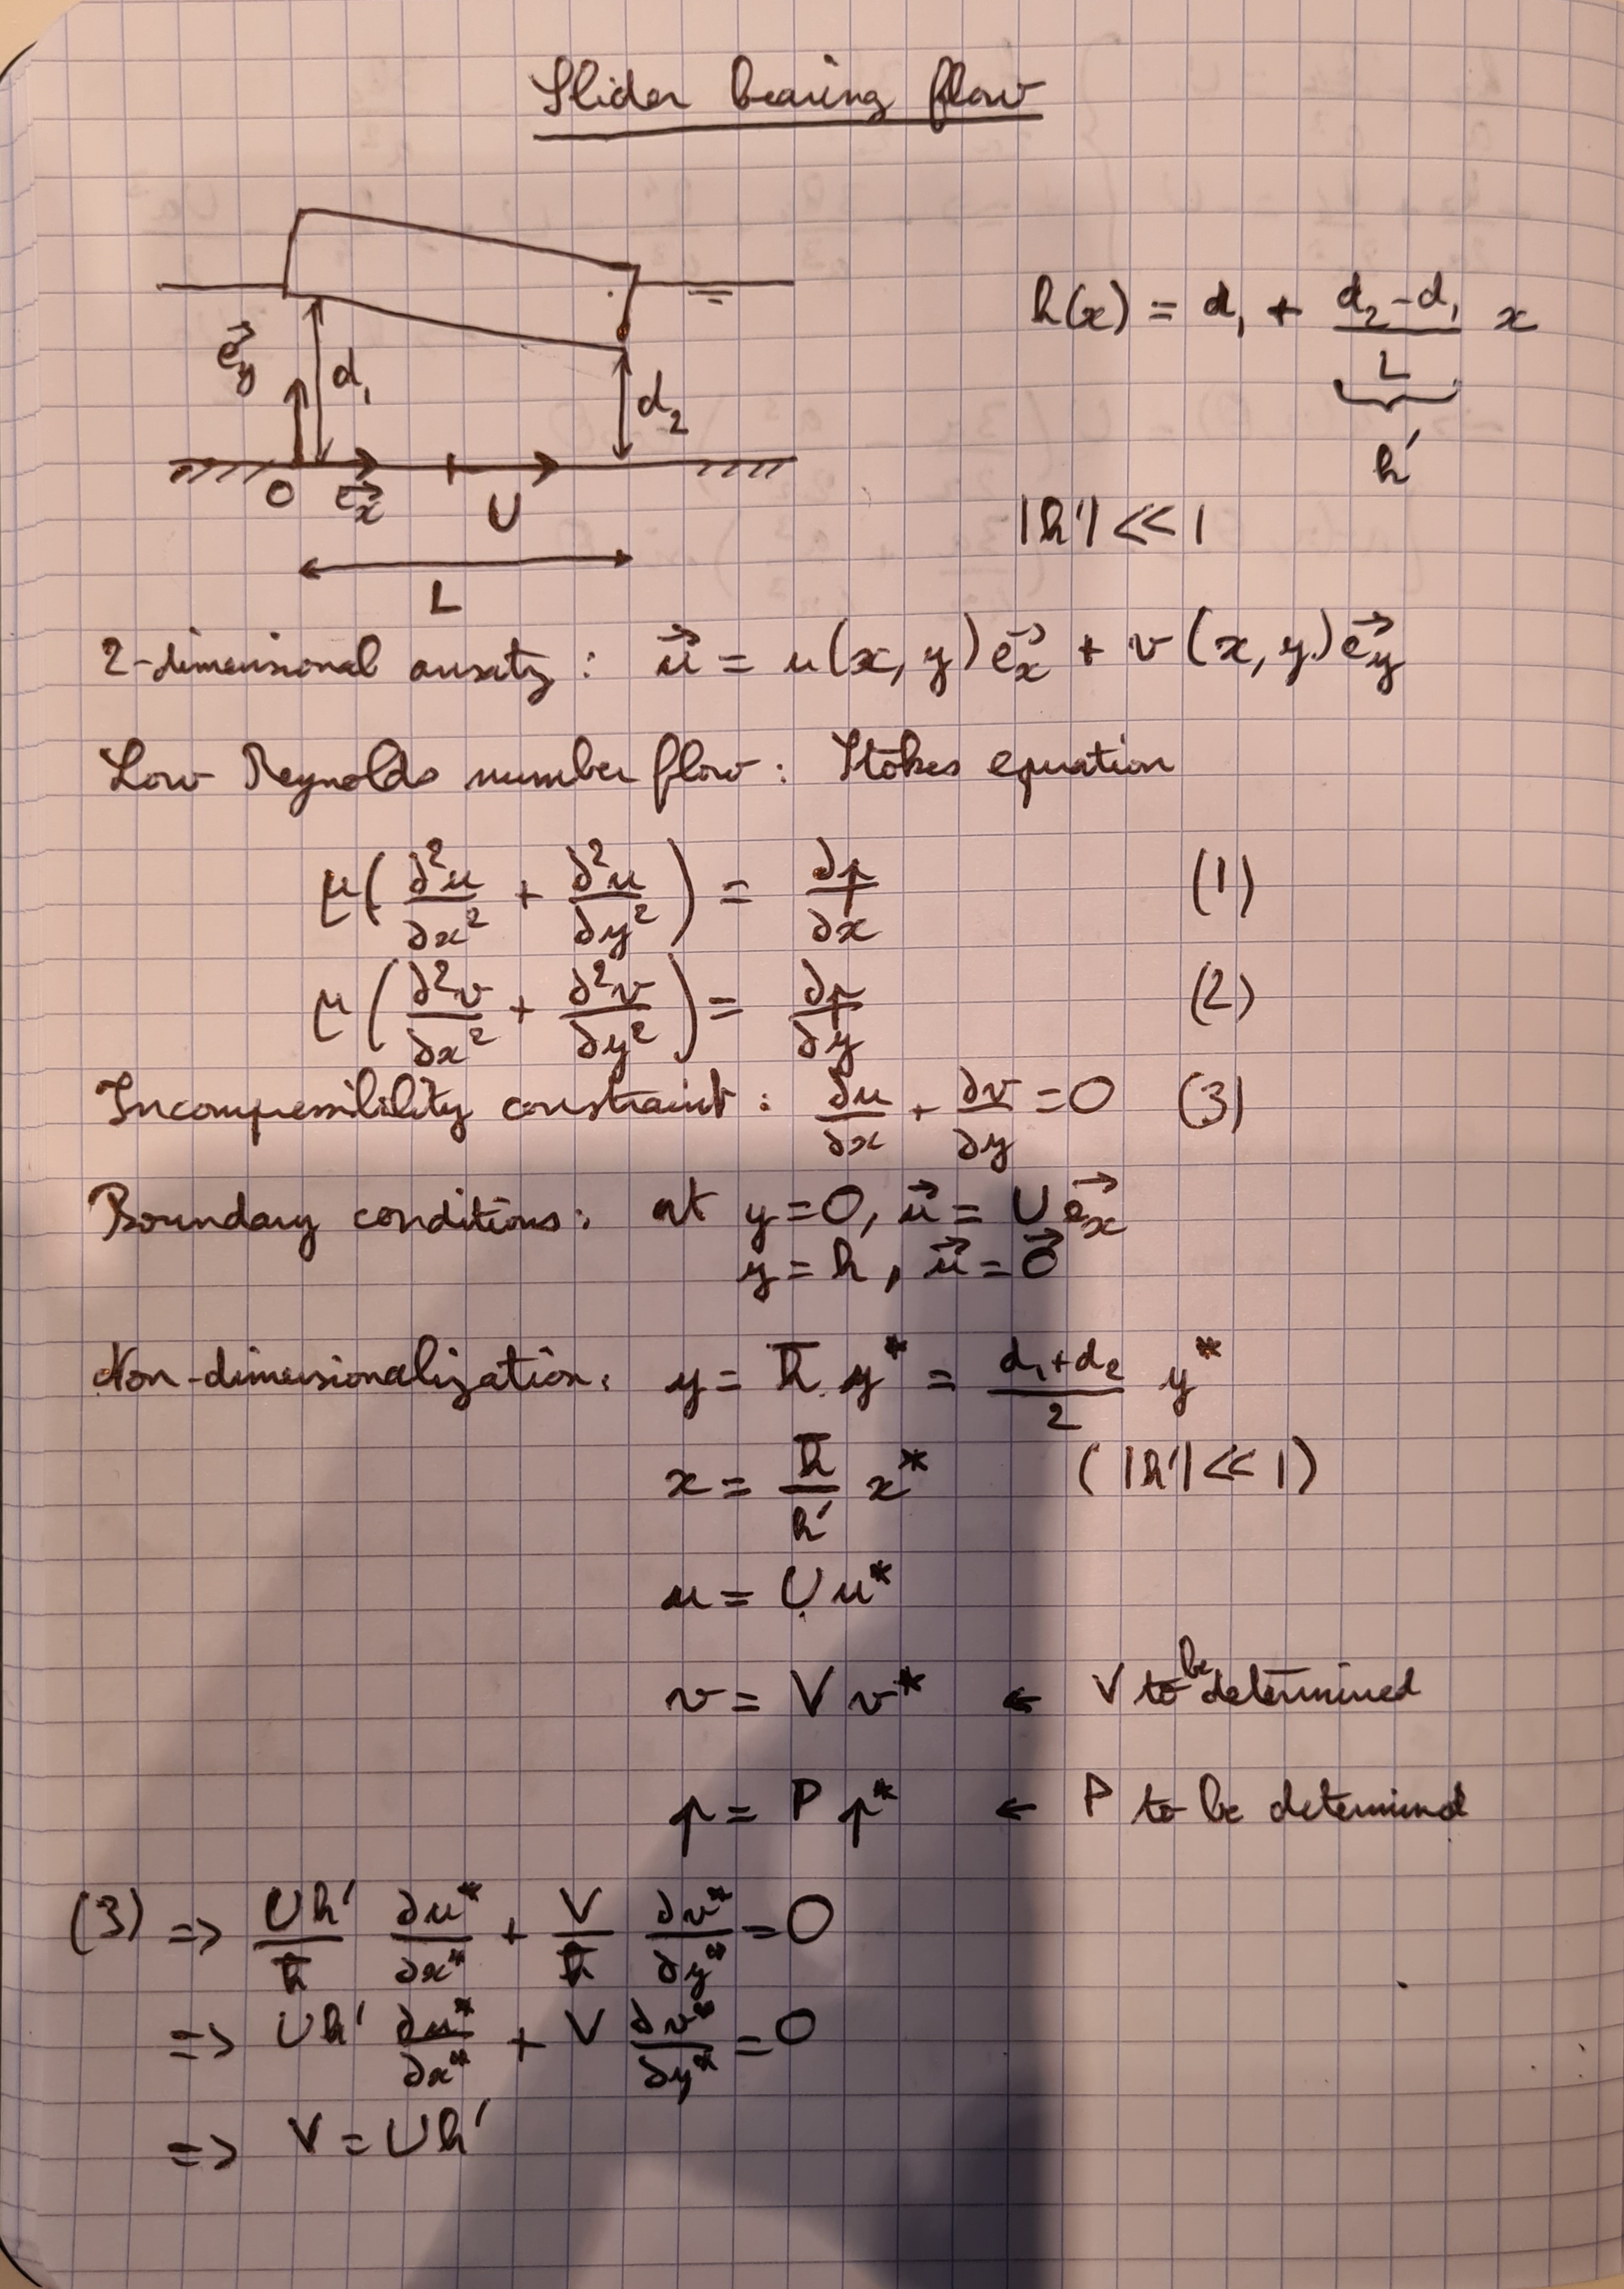 Slider bearing flow
h(x) = d₁ + (d₂ - d₁)/L x
h'
|h'| << 1
e⃗y
d₁
d₂
O e⃗x U
L
2-dimensional ansatz : u⃗ = u(x, y) e⃗x + v(x, y) e⃗y
Low Reynolds number flow : Stokes equation
μ(∂²u/∂x² + ∂²u/∂y²) = ∂p/∂x (1)
μ(∂²v/∂x² + ∂²v/∂y²) = ∂p/∂y (2)
Incompressibility constraint : ∂u/∂x + ∂v/∂y = 0 (3)
Boundary conditions : at y = 0, u⃗ = U e⃗x
y = h, u⃗ = 0⃗
Non-dimensionalization : y = h̄ y* = (d₁ + d₂)/2 y*
x = h̄/h' x* (|h'| << 1)
u = U u*
v = V v* ← V to be determined
p = P p* ← P to be determined
(3) => Uh'/h̄ ∂u*/∂x* + V/h̄ ∂v*/∂y* = 0
=> Uh' ∂u*/∂x* + V ∂v*/∂y* = 0
=> V = Uh'